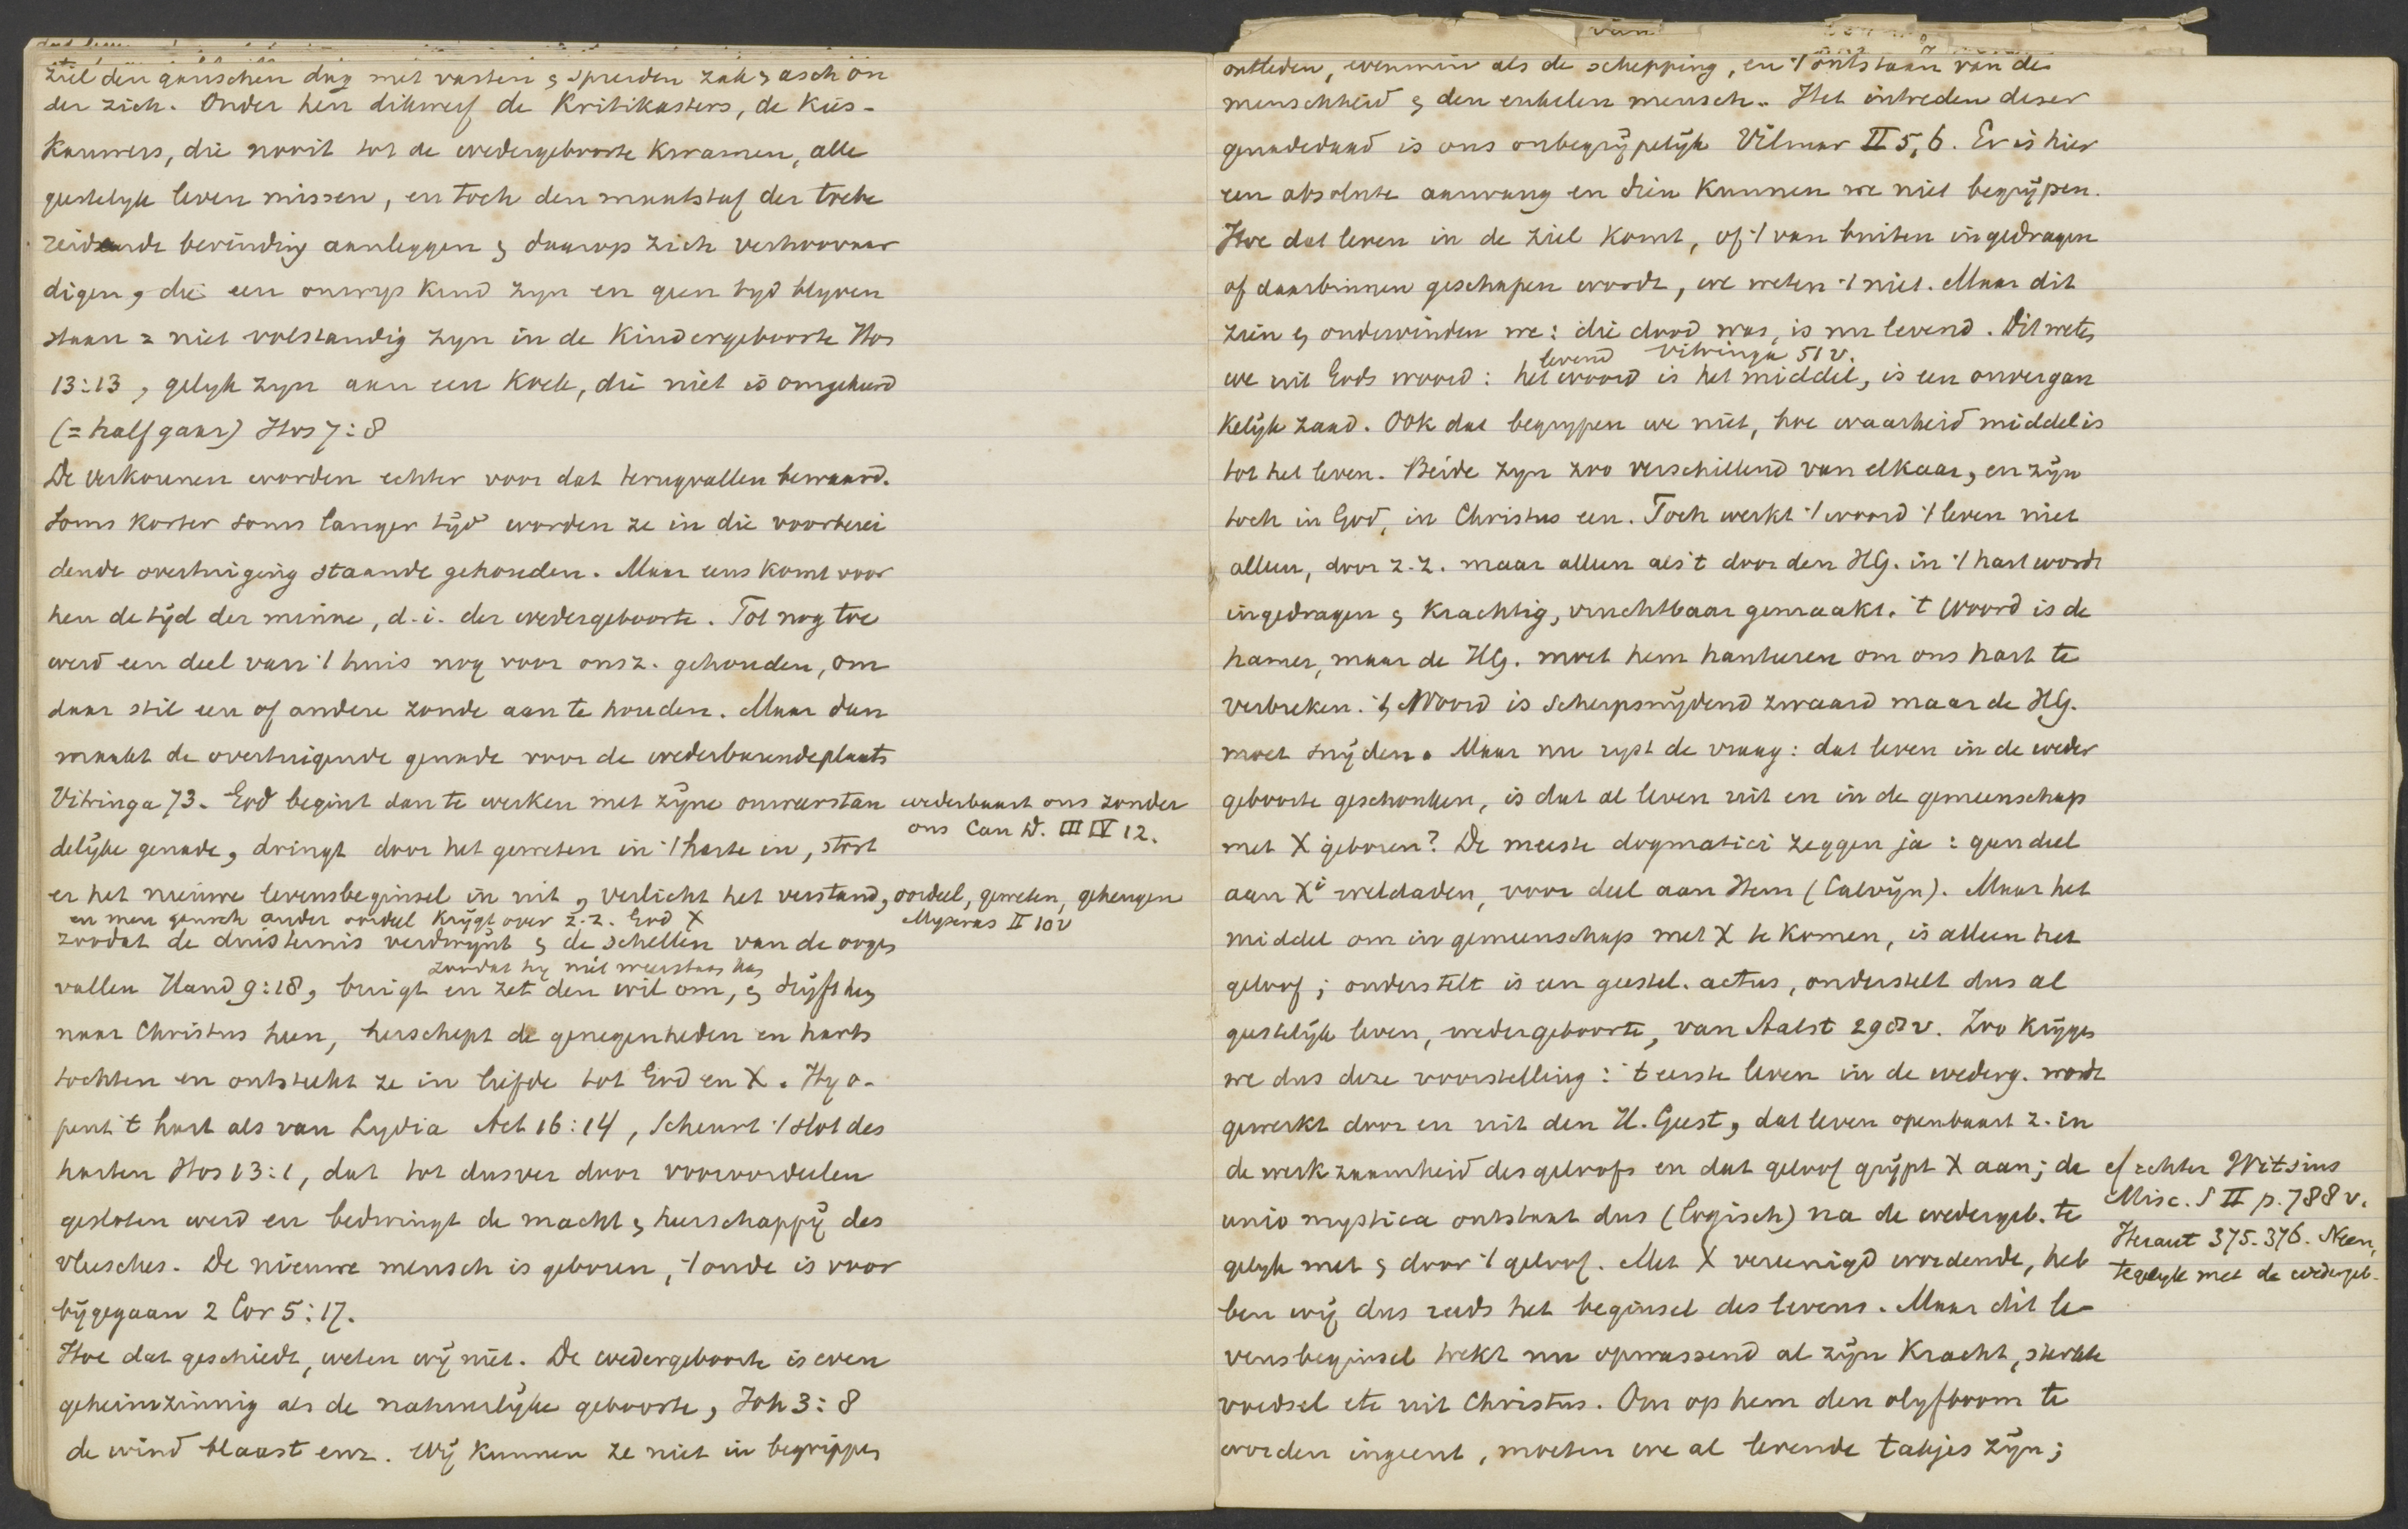 ziel den ganschen dag met vasten & spreiden zak & asch on
der zich. Onder hen dikwerf de Kritikasters, de Kies-
kauwers, die nooit tot de wedergeboorte kwamen, alle
geestelyk leven missen, en toch den maatstaf der voorbe
reidende bevinding aanleggen & daarop zich verhoovaar
digen, die een onwys kind zyn en geen tyd blyven
staan = niet volstandig zyn in de Kindergeboorte Hos
13:13, gelyk zyn aan een Koek, die niet is omgekeerd
(= half gaar) Hos 7:8
De Verkorenen worden echter voor dat terugvallen bewaard.
Soms korter soms langer tijd worden ze in die voorberei
dende overtuiging staande gehouden. Maar eens komt voor
hen de tijd der minne, d.i. der wedergeboorte. Tot nog toe
werd een deel van 't huis nog voor ons z. gehouden, om
daar stil een of andere zonde aan te houden. Maar dan
maakt de overtuigende genade voor de wederbarende plaats
Vitringa 73. God begint dan te werken met zijne onweerstan
wederbaart ons zonder
ons Can D. III IV 12.
delijke genade, dringt door het geweten in 't harte in, stort
er het nieuwe levensbeginsel in uit, verlicht het verstand, oordeel, geweten, geheugen
Myseras II 10 v
en men gansch ander oordeel krijgt over z.z. God X
zoodat de duisternis verdwijnt & de schellen van de oogen
zoodat hy niet weerstaan kan
vallen Hand 9:18, buigt en zet den wil om, & drijft hem
naar Christus heen, herschept de genegenheden en harts
tochten en ontsteekt ze in liefde tot God en X. Hy o-
pent 't hart als van Lydia Act 16:14, Scheurt 't slot des
harten Hos 13:1, dat tot dusver door vooroordeelen
gesloten werd en bedwingt de macht & heerschappij des
vleesches. De nieuwe mensch is geboren, 't oude is voor
bijgegaan 2 Cor 5:17.
Hoe dat geschiedt, weten wij niet. De wedergeboorte is even
geheimzinnig als de natuurlijke geboorte, Joh 3:8
de wind blaast enz. Wij kunnen ze niet in begrippen
ontleden, evenmin als de schepping, en 't ontstaan van de
menschheid & den enkelen mensch. Het intreden dezer
genadedaad is ons onbegrijpelijk Vilmar II 5,6. Er is hier
een absolute aanvang en dien kunnen we niet begrijpen.
Hoe dat leven in de ziel komt, of 't van buiten ingedragen
of daarbinnen geschapen wordt, we weten 't niet. Maar dit
zien & ondervinden we: die dood was, is nu levend. Dit weten
levend Vitringa 51 v.
we uit Gods woord: het woord is het middel, is een onvergan
kelijk zaad. Ook dat begrypen we niet, hoe waarheid middel is
tot het leven. Beide zyn zoo verschillend van elkaar, en zijn
toch in God, in Christus een. Toch werkt 't woord 't leven niet
alleen, door z.z. maar alleen als 't door den HG. in 't hart wordt
ingedragen & krachtig, vruchtbaar gemaakt. 't Woord is de
hamer, maar de HG. moet hem hanteeren om ons hart te
verbreken. 't Woord is Scherpsnijdend zwaard maar de HG.
moet snijden. Maar nu ryst de vraag: dat leven in de weder
geboorte geschonken, is dat al leven uit en in de gemeenschap
met X geboren? De meeste dogmatici zeggen ja: geen deel
aan Xi weldaden, voor deel aan Hem (Calvijn). Maar het
middel om in gemeenschap met X te komen, is alleen het
geloof; onderstelt is een geestel. actus, onderstelt dus al
geestelijk leven, wedergeboorte, van Aalst 298 v. Zoo krijgen
we dus deze voorstelling: 't eerste leven in de wederg. wordt
gewerkt door en uit den H. Geest, dat leven openbaart z. in
de werkzaamheid des geloofs en dat geloof grijpt X aan; de
cf echter Witsius
Misc. S II p. 788 v.
unio mystica ontstaat dus (logisch) na de wedergeb. te
Heraut 375. 376. Neen,
tegelyk met de wedergeb.
gelyk met & door 't geloof. Met X vereenigd wordende, heb
ben wij dus reeds het beginsel des levens. Maar dit le-
vensbeginsel trekt nu opwassend al zijn Kracht, sterkte
voedsel etc uit Christus. Om op hem den olyfboom te
worden ingeent, moeten we al levende takjes zijn;